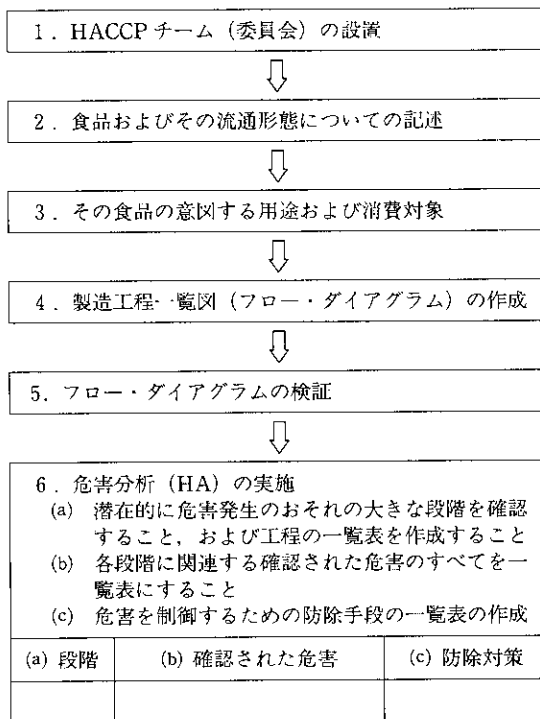 1．HACCPチーム（委員会）の設置
2．食品およびその流通形態についての記述
3．その食品の意図する用途および消費対象
4．製造工程一覧図（フロー・ダイアグラム）の作成
5．フロー・ダイアグラムの検証
6．危害分析（HA）の実施
(a) 潜在的に危害発生のおそれの大きな段階を確認
すること，および工程の一覧表を作成すること
(b) 各段階に関連する確認された危害のすべてを一
覧表にすること
(c) 危害を制御するための防除手段の一覧表の作成
(a) 段階 (b) 確認された危害 (c) 防除対策